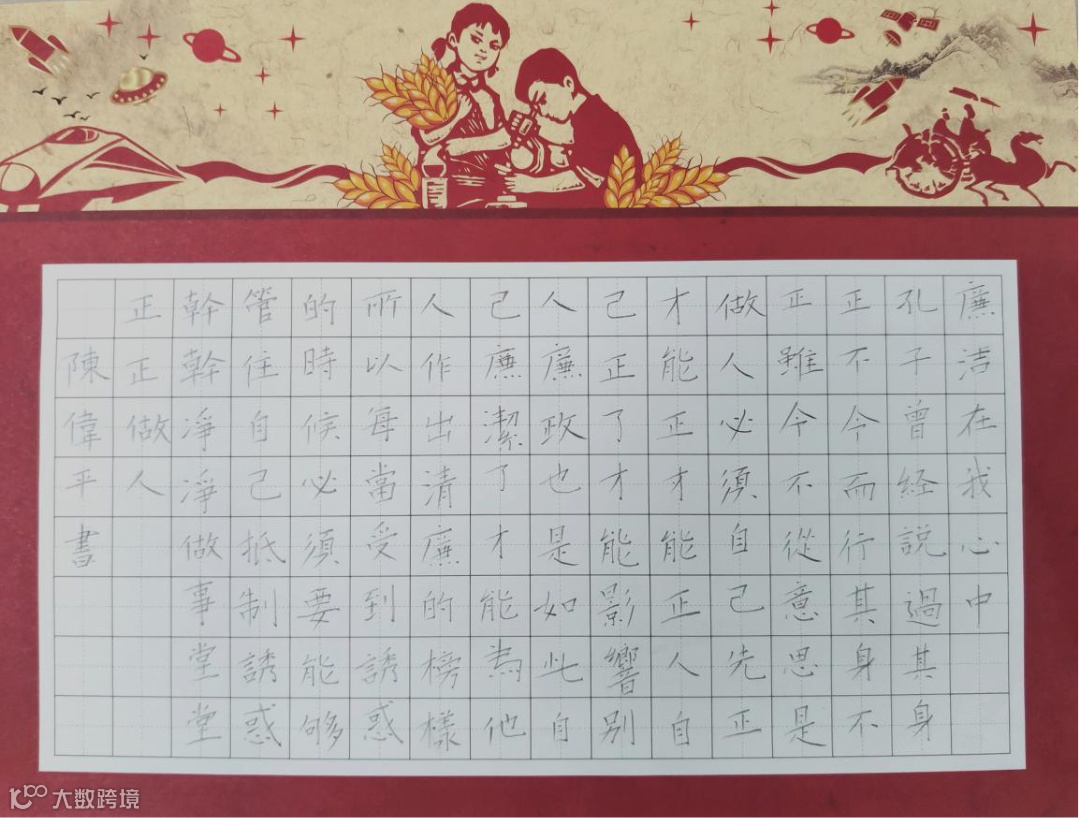 廉洁在我心中
孔子曾経說過其身
正不今而行其身不
正雖今不從意思是
做人必須自己先正
才能正才能正人自
己正了才能影響别
人廉政也是如此自
己廉潔了才能為他
人作出清廉的榜樣
所以每當受到誘惑
的時候必須要能够
管住自己抵制誘惑
幹幹淨淨做事堂堂
正正做人
陳偉平書
大数跨境